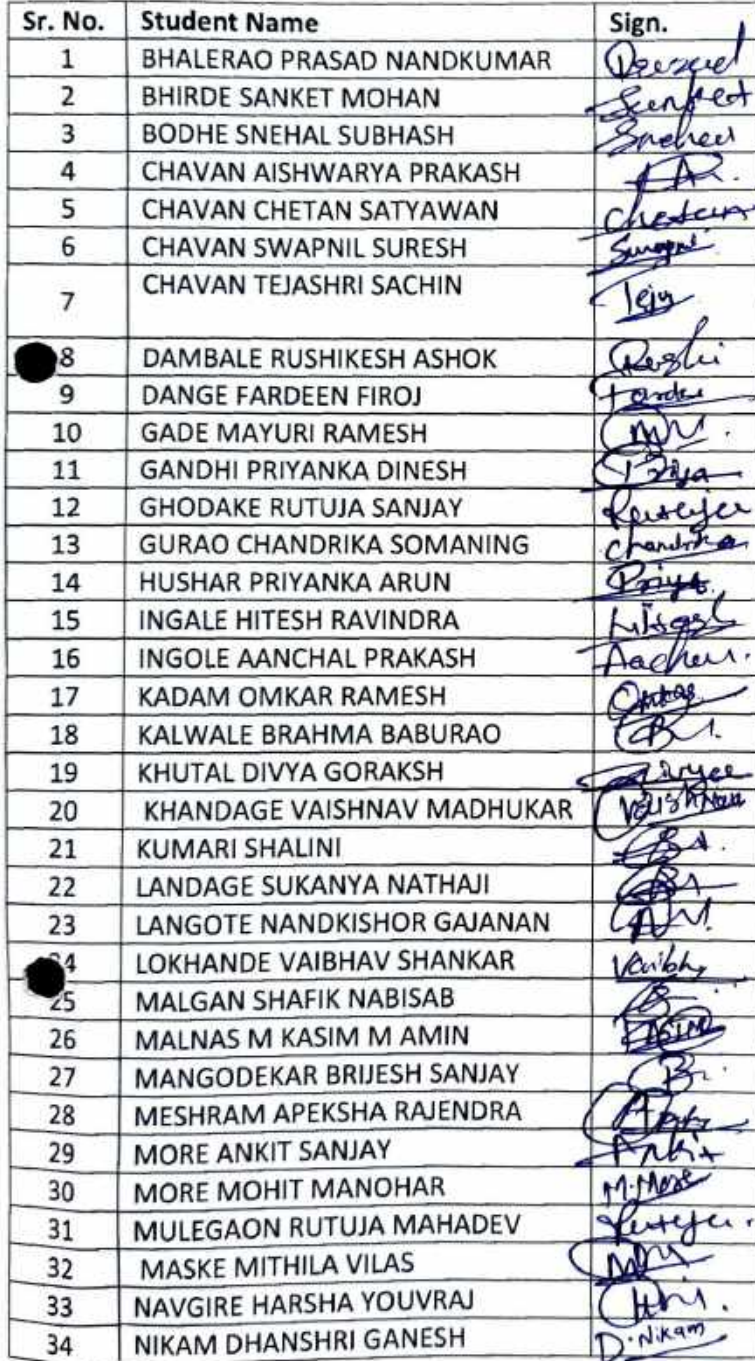 Sr. No. Student Name Sign.
1 BHALERAO PRASAD NANDKUMAR
2 BHIRDE SANKET MOHAN Sanket
3 BODHE SNEHAL SUBHASH
4 CHAVAN AISHWARYA PRAKASH
5 CHAVAN CHETAN SATYAWAN Chetan
6 CHAVAN SWAPNIL SURESH
7 CHAVAN TEJASHRI SACHIN Teju
8 DAMBALE RUSHIKESH ASHOK Rushi
9 DANGE FARDEEN FIROJ
10 GADE MAYURI RAMESH
11 GANDHI PRIYANKA DINESH Priya
12 GHODAKE RUTUJA SANJAY
13 GURAO CHANDRIKA SOMANING Chandrika
14 HUSHAR PRIYANKA ARUN Priya
15 INGALE HITESH RAVINDRA
16 INGOLE AANCHAL PRAKASH
17 KADAM OMKAR RAMESH Omkar
18 KALWALE BRAHMA BABURAO
19 KHUTAL DIVYA GORAKSH
20 KHANDAGE VAISHNAV MADHUKAR Vaishnav
21 KUMARI SHALINI
22 LANDAGE SUKANYA NATHAJI
23 LANGOTE NANDKISHOR GAJANAN
24 LOKHANDE VAIBHAV SHANKAR
25 MALGAN SHAFIK NABISAB
26 MALNAS M KASIM M AMIN KASIM
27 MANGODEKAR BRIJESH SANJAY
28 MESHRAM APEKSHA RAJENDRA
29 MORE ANKIT SANJAY Ankit
30 MORE MOHIT MANOHAR M.More
31 MULEGAON RUTUJA MAHADEV
32 MASKE MITHILA VILAS
33 NAVGIRE HARSHA YOUVRAJ
34 NIKAM DHANSHRI GANESH D.Nikam